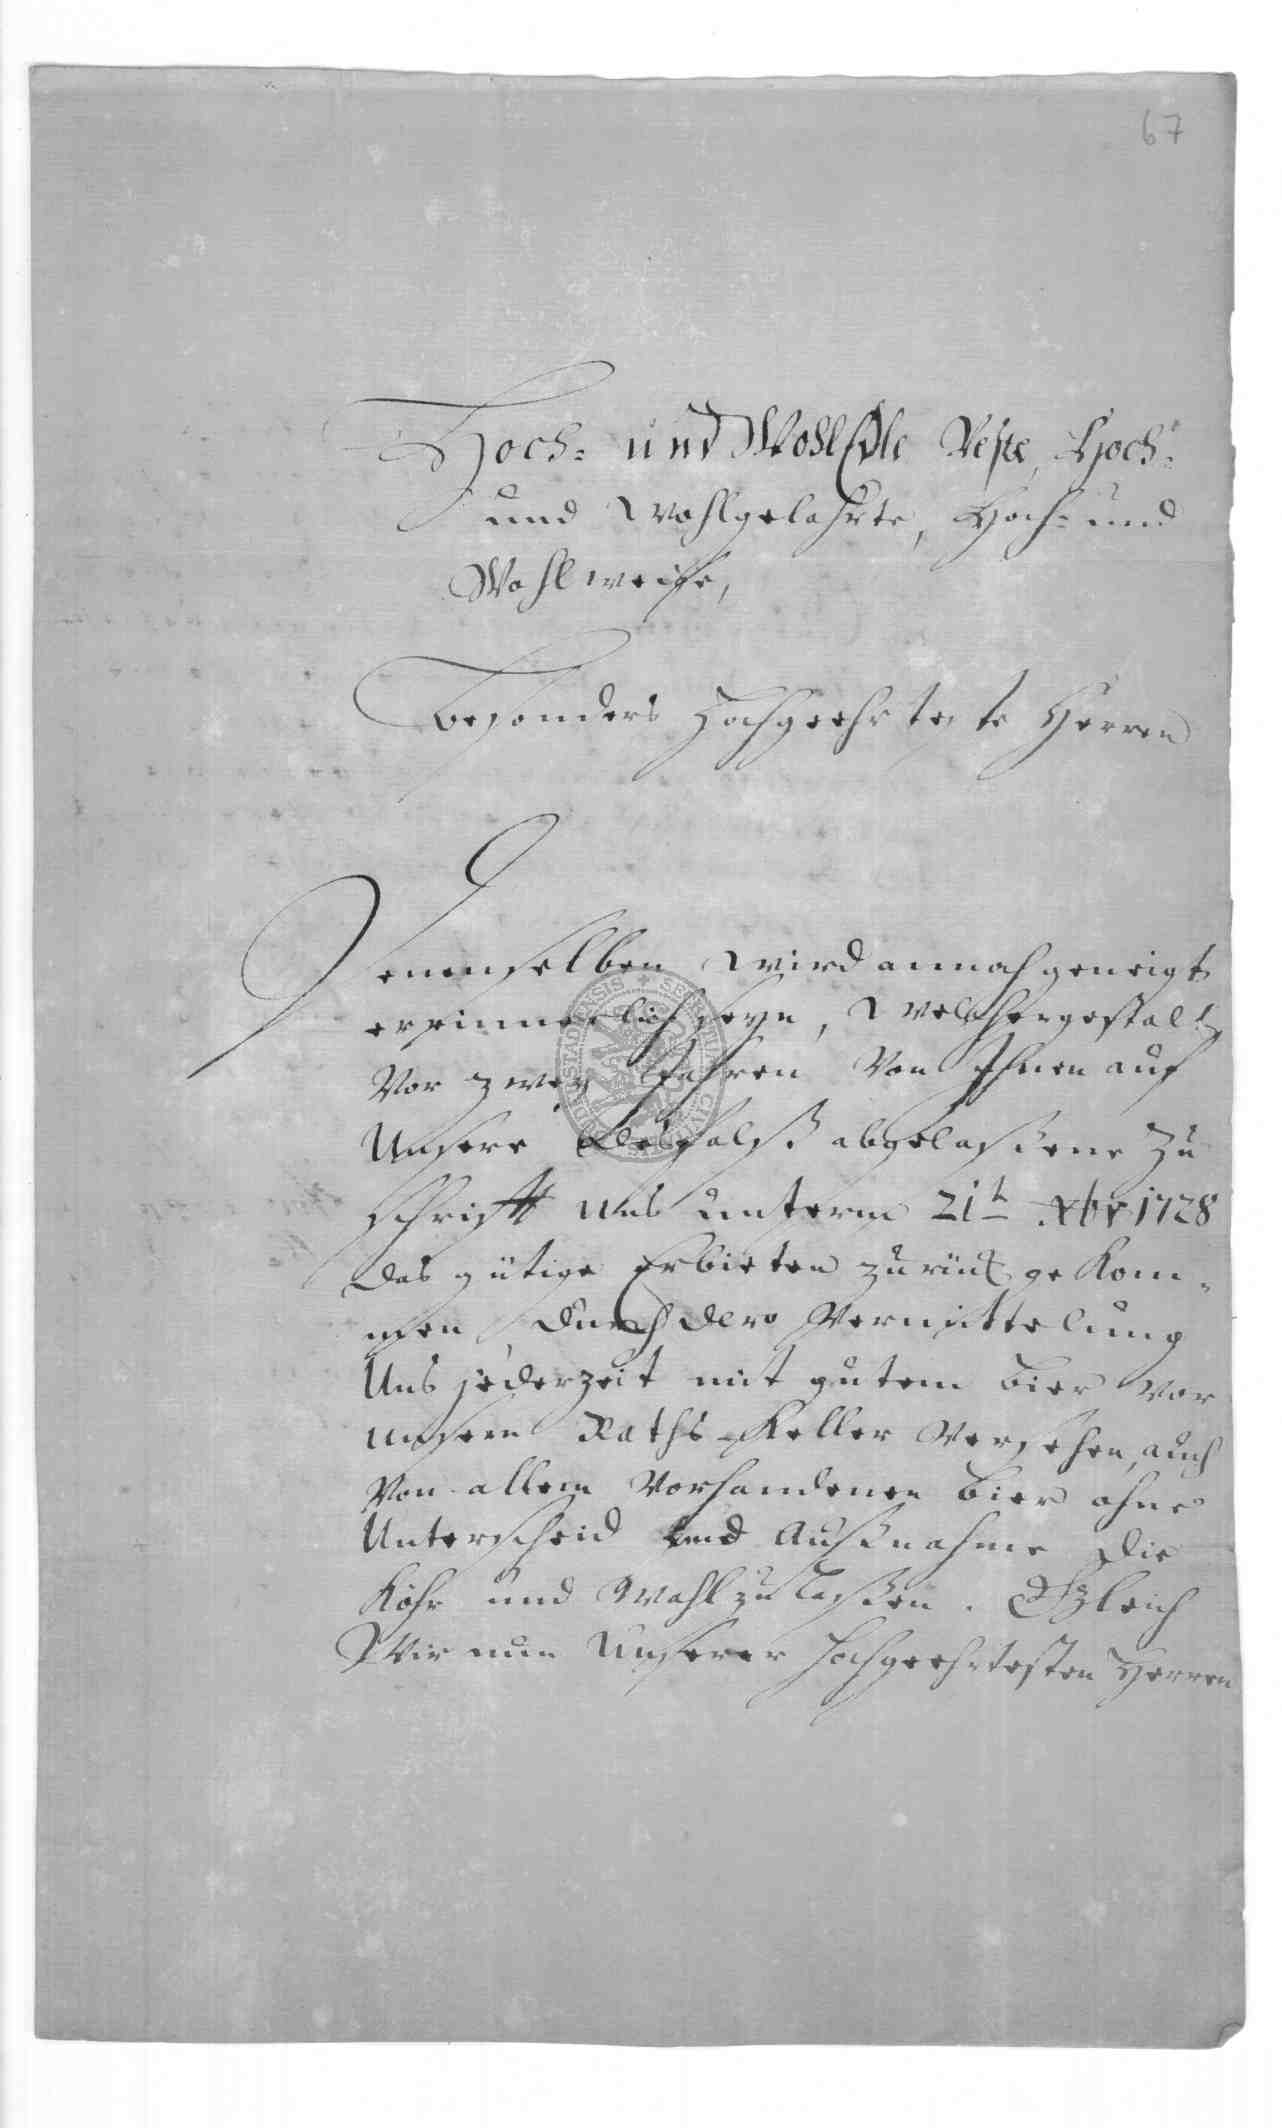 67
Hoch- und WohlEdle Veste, Hoch-
und Wohlgelahrte, Hoch- und
Wohlweise,
besonders Hochgeehrteste Herren
Denenselben wird annoch geneigt
erinnerlich seyn, Welchergestalt
Vor zwey Jahren Von Ihnen auf
Unsere desfalß abgelaßene Zu
schrifft Uns unterm 21t Xbr 1728
das gütige Erbieten zurück gekom-
men durch dero Vermittelung
Uns jederzeit mit gutem bier vor
unsern Raths-Keller Versehen, auch
Von allem Vorhandenen bier ohne
Unterscheid und Außnahme die
Köhr und Wahl zu laßen. Obgleich
Wir nun Unserer Hochgeehrtesten Herren